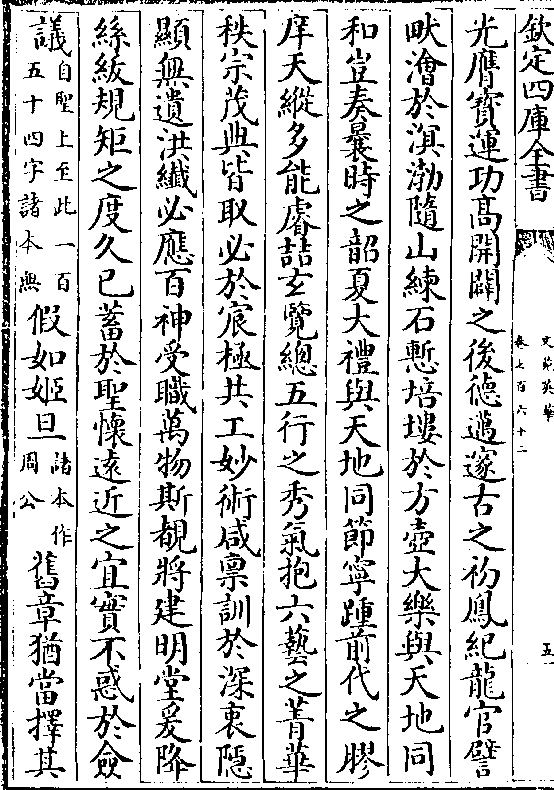 欽定四庫全書
文苑英華
卷七百六十二
五
光膺寶運功髙開闢之後德邁邃古之初鳳紀龍官譬
畎澮於溟渤隨山練石慙培塿於方壺大樂與天地同
和豈奏曩時之韶夏大禮與天地同節寧踵前代之膠
庠天縱多能睿喆玄覽總五行之秀氣抱六藝之菁華
秩宗茂典皆取必於宸極共工妙術咸禀訓於深衷隱
顯無遺洪纎必應百神受職萬物斯覩將建明堂爰降
絲紱規矩之度久已蓄於聖懐遠近之宜實不惑於僉
議自聖上至此一百五十四字諸本無假如姬旦諸本作周公舊章猶當擇其